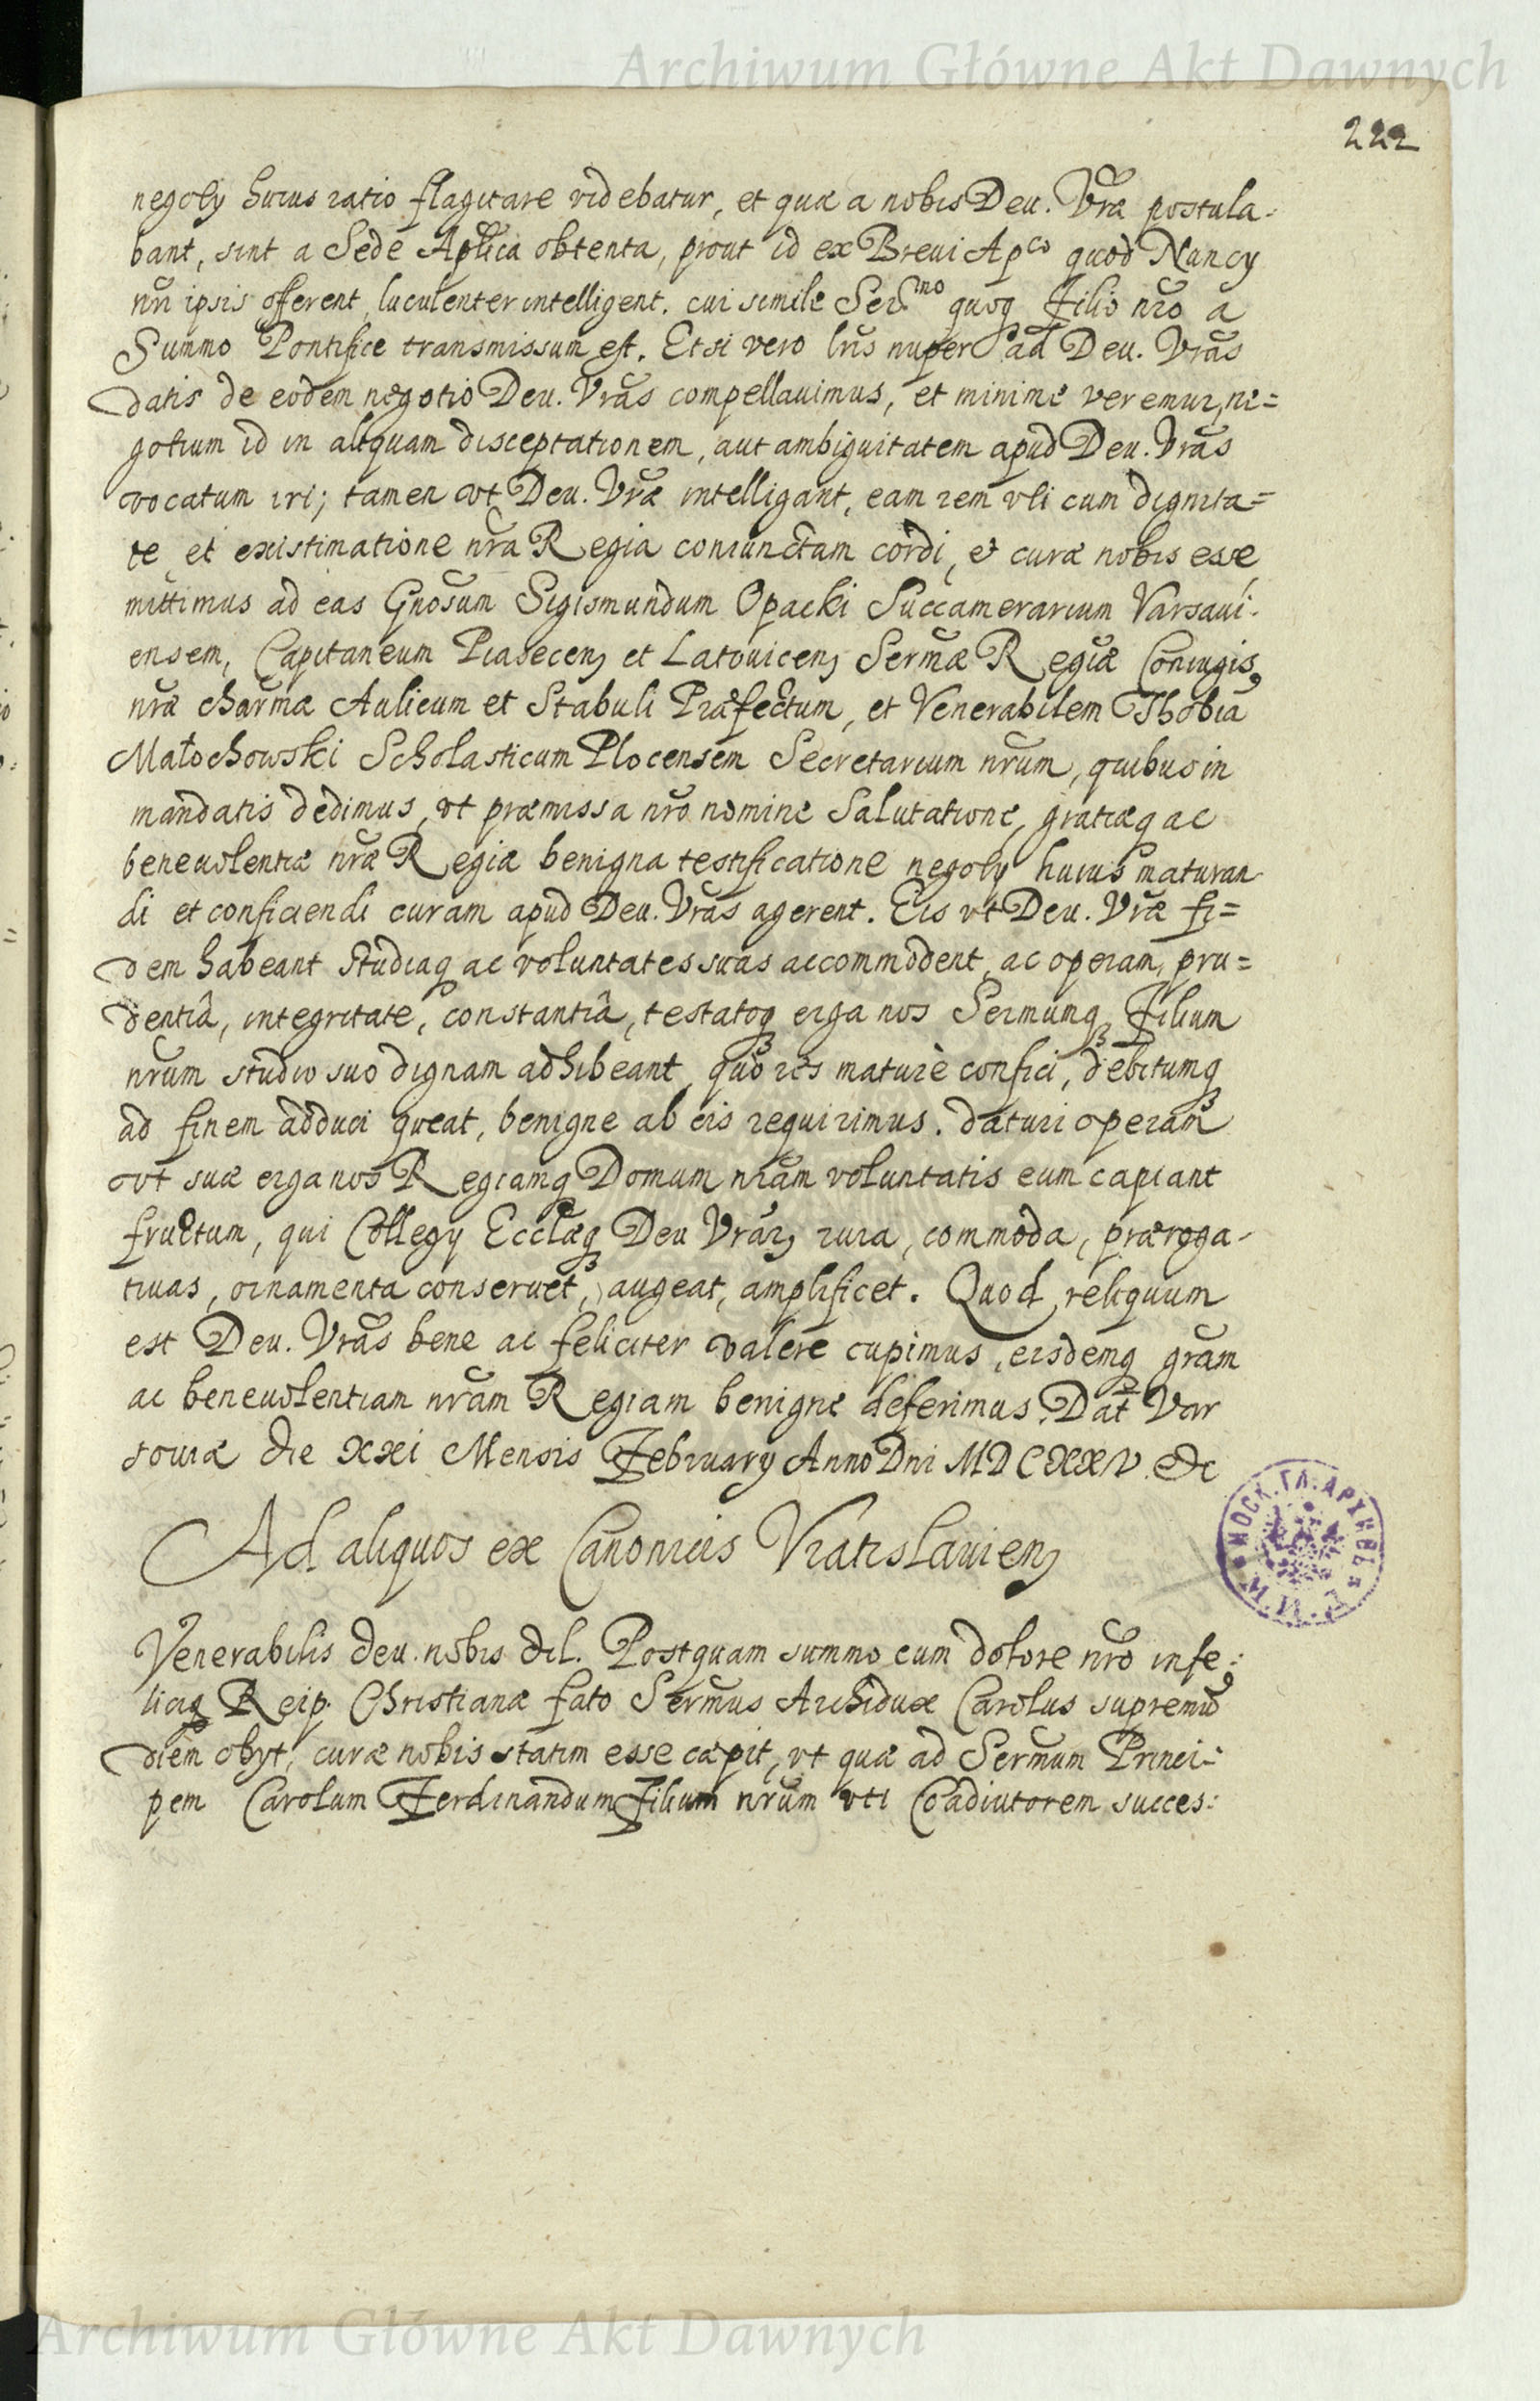 Archiwum Główne Akt Dawnych
222
negoty huius ratio flagitare videbatur, et quæ a nobis Deu. Vræ postula-
bant, sint a Sede Aplica obtenta, prout id ex Breui Apco quod Nancy
nri ipsis offerent, luculenter intelligent. cui simile Sermo quoq Filio nro a
Summo Pontifice transmissum est. Etsi vero lris nuper ad Deu. Vras
datis de eodem negotio Deu. Vras compellauimus, et minime veremur, ne=
gotium id in aliquam disceptationem, aut ambiguitatem apud Deu. Vras
vocatum iri; tamen vt Deu. Vræ intelligant, eam rem vti cum dignita=
te et existimatione nra Regia coniunctam cordi, et curæ nobis esse
mittimus ad eas Gnosum Sigismundum Opacki Succamerarium Varsaui-
ensem, Capitaneum Piasecen, et Latouicen, Sermæ Regiæ Coniugis
nræ charmæ Aulicum et Stabuli Præfectum, et Venerabilem Thobia
Małochowski Scholasticum Plocensem Secretarium nrum, quibus in
mandatis dedimus, vt præmissa nro nomine Salutatione, gratiæq ac
beneuolentiæ nræ Regiæ benigna testificatione negoty huius maturan
di et conficiendi curam apud Deu. Vras agerent. Eis vt Deu. Vræ fi=
dem habeant studiaq ac voluntates suas accommodent, ac operam, pru=
dentiâ, integritate, constantiâ, testatoq erga nos Sermumq Filium
nrum studio suo dignam adhibeant, quò res maturè confici, debitumq
ad finem adduci queat, benigne ab eis requirimus. daturi operam
vt suæ erga nos Regiamq Domum nram voluntatis eum capiant
fructum, qui Collegy Ecclæq Deu Vrar, iura, commoda, præroga-
tiuas, ornamenta conseruet, augeat, amplificet. Quod reliquum
est Deu. Vras bene ac feliciter valere cupimus, eisdemq gram
ac beneuolentiam nram Regiam benigne deferimus. Dat Var
souiæ die xxi Mensis February Anno Dni MDCXXV. etc
Ad aliquos ex Canonicis Vratislauien,
Venerabilis deu. nobis dil. Postquam summo cum dolore nro infe-
liciq Reip. Christianæ fato Sermus Archidux Carolus supremu
diem obyt, curæ nobis statim esse cæpit, vt quæ ad Sermum Princi-
pem Carolum Ferdinandum Filium nrum vti Coadiutorem succes:
МОСК. ГЛ. АРХИВЪ
Archiwum Główne Akt Dawnych